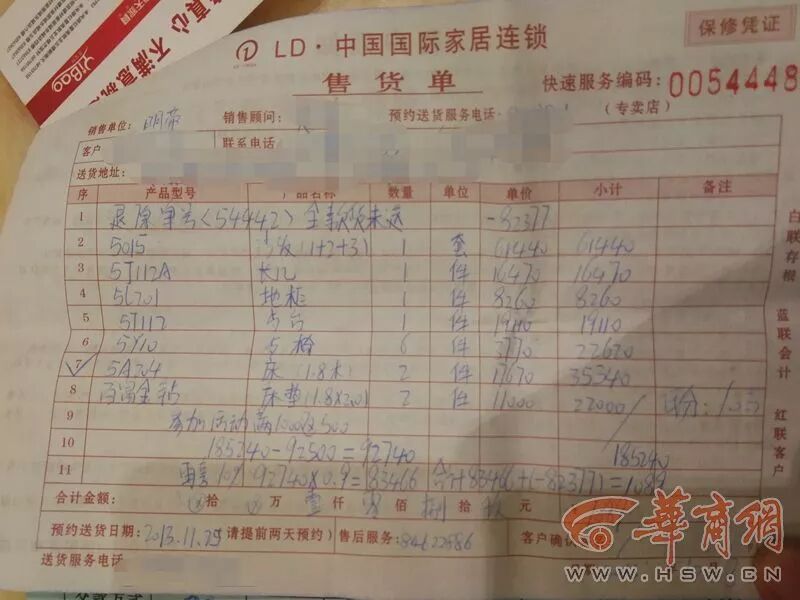 YiBao
真心 不满意
LD·中国国际家居连锁
保修凭证
售货单
快速服务编码：0054448
（专卖店）
销售单位：明帝 销售顾问： 预约送货服务电话：
客户 联系电话
送货地址：
序 产品型号 产品名称 数量 单位 单价 小计 备注
1 退原单号（54442）全款货未送 -82377
2 5015 沙发(1+2+3) 1 套 61440 61440
3 5T112A 长几 1 件 16470 16470
4 5L201 地柜 1 件 8260 8260
5 5T112 1 件 19110 19110
6 5Y10 6 件 3770 22620
7 5A204 床(1.8米) 2 件 17670 35340
8 床垫(1.8×2.0) 2 件 11000 22000
9 参加活动满1000送500
10 185240-92500=92740 185240
11 92740×0.9=83466 合计83466+(-82377)=1089
合计金额： 拾 万 壹仟 零佰 捌拾 玖元
预约送货日期：2013.11.25 请提前两天预约） 售后服务：84622886 客户确认
送货服务电话
白联存根
蓝联会计
红联客户
交款方式
华商网
WWW.HSW.CN